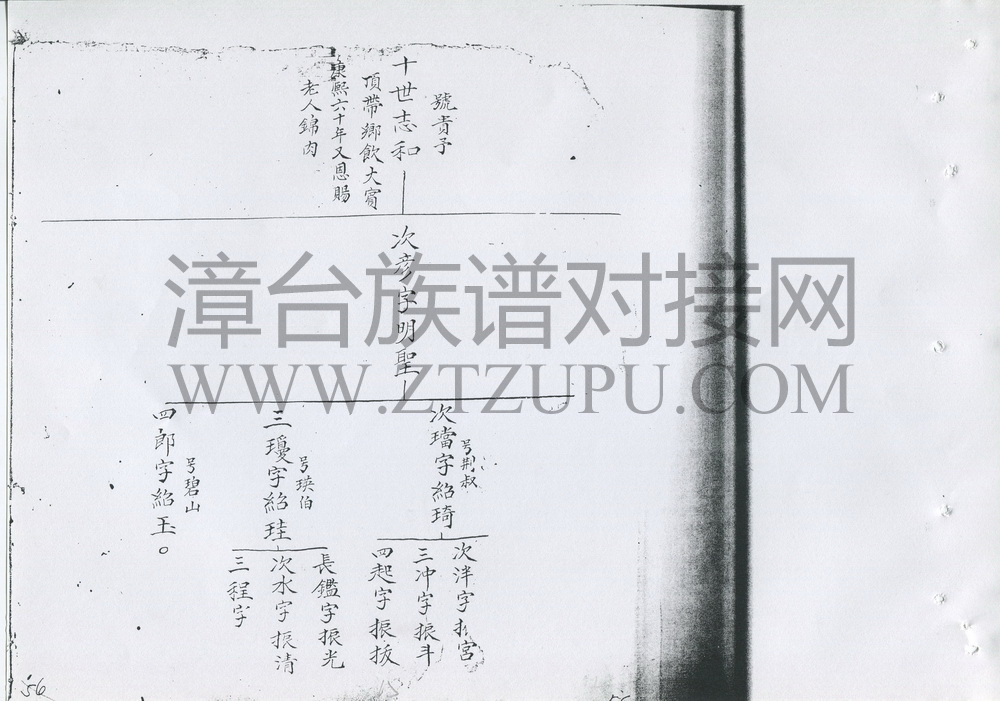 號貴予
十世志和
頂帶鄉飲大賓
康熙六十年又恩賜
老人錦肉
次彦字明聖
次璫字紹琦
号荆叔
三瓊字紹珪
号瑛伯
四郎字紹玉。
号碧山
次泮字振宮
三冲字振斗
四起字振拔
長鑑字振光
次水字振清
三程字
漳台族谱对接网
WWW.ZTZUPU.COM
56